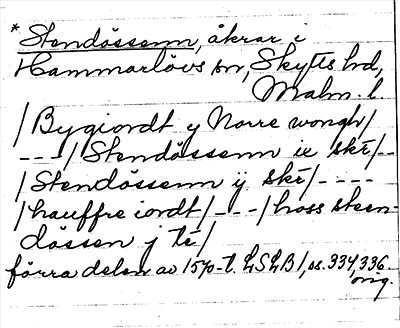 * Stendössenn, åkrar i
Hammarlövs sn, Skytts hd,
Malm. l.
/ Bygiordt y Norre wongh /
--- / Stendössenn ie skr / --
/ Stendössenn ij skr / ----
/ hauffre iordt / --- / hoss sten-
dössen j tr /
förra delen av 1570-t. LSLB 1, ss. 334, 336
orig.